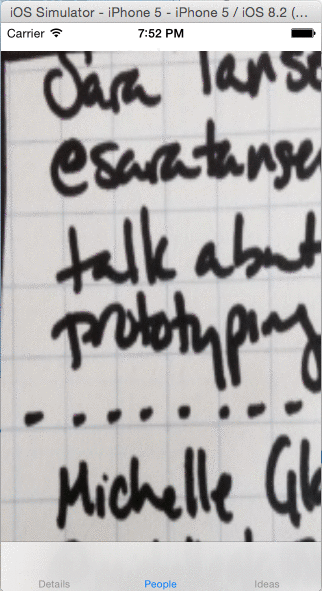 iOS Simulator - iPhone 5 - iPhone 5 / iOS 8.2 (...
Carrier 7:52 PM
Sara Tanse
@saratange
talk about
prototyping
Michelle Gla
Details People Ideas